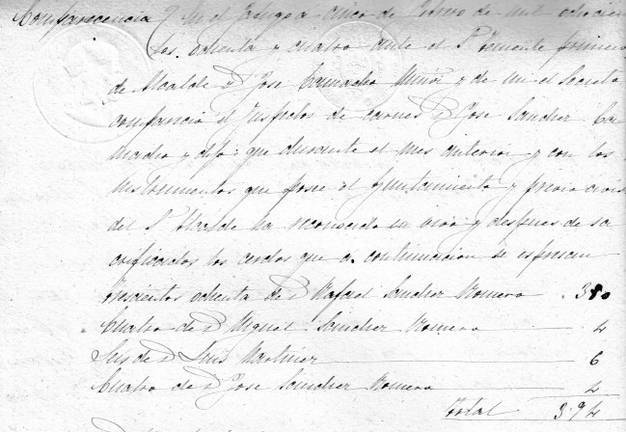 Comparecencia En el Jaugea cinco de Enero de mil ochocien
tos ochenta y cuatro ante el Sr. Teniente primero
de Alcalde D. Jose Camacho Muñoz y de mi el Secreto
comparecio el Inspector de carnes D. Jose Sanchez Ca
macho y dijo: que durante el mes anterior y con los
instrumentos que posee el Ayuntamiento y previo aviso
del Sr. Alcalde ha reconocido en vivo y despues de sa
crificados los cerdos que a continuacion se espresan
trescientos ochenta de D. Rafael Sanchez Romero 380
Cuatro de D. Miguel Sanchez Romero 4
Seis de D. Luis Martinez 6
Cuatro de D. Jose Sanchez Romero 4
Total 394